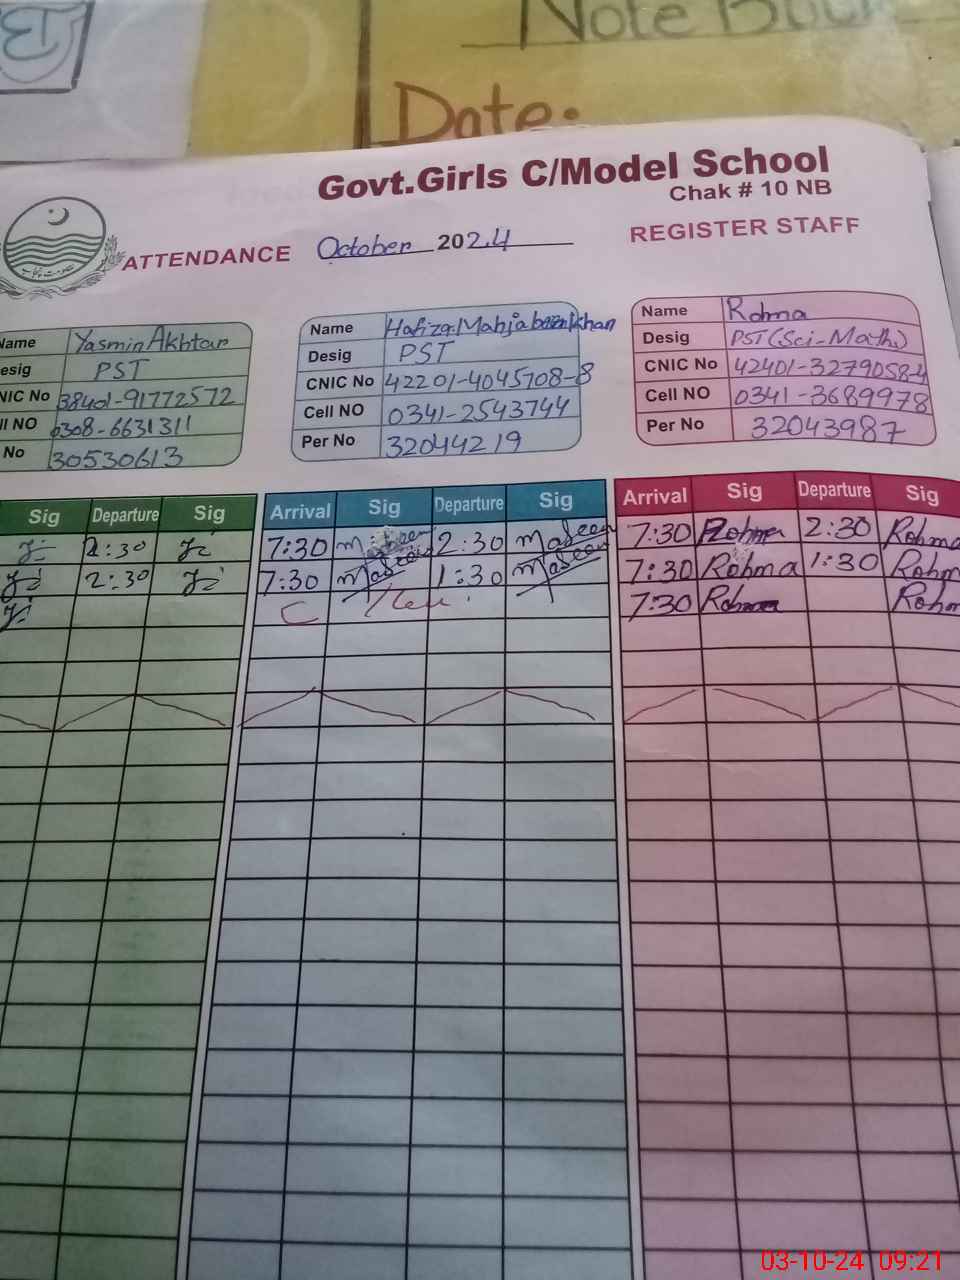 Note Book
Date:
Govt.Girls C/Model School
Chak # 10 NB
ATTENDANCE October 2024 REGISTER STAFF
Name Yasmin Akhtar
Desig PST
CNIC No 38401-91772572
Cell NO 0308-6631311
No 30530613
Name Hafiza Mahjabeen khan
Desig PST
CNIC No 42201-4045708-8
Cell NO 0341-2543744
Per No 32044219
Name Rohma
Desig PST(Sci-Math)
CNIC No 42401-3279058-4
Cell NO 0341-3689978
Per No 32043987
Sig Departure Sig Arrival Sig Departure Sig Arrival Sig Departure Sig
2:30 7:30 2:30 7:30 Rohma 2:30 Rohma
2:30 7:30 1:30 7:30 Rohma 1:30 Rohm
C 7:30 Rohma Rohm
03-10-24 09:21